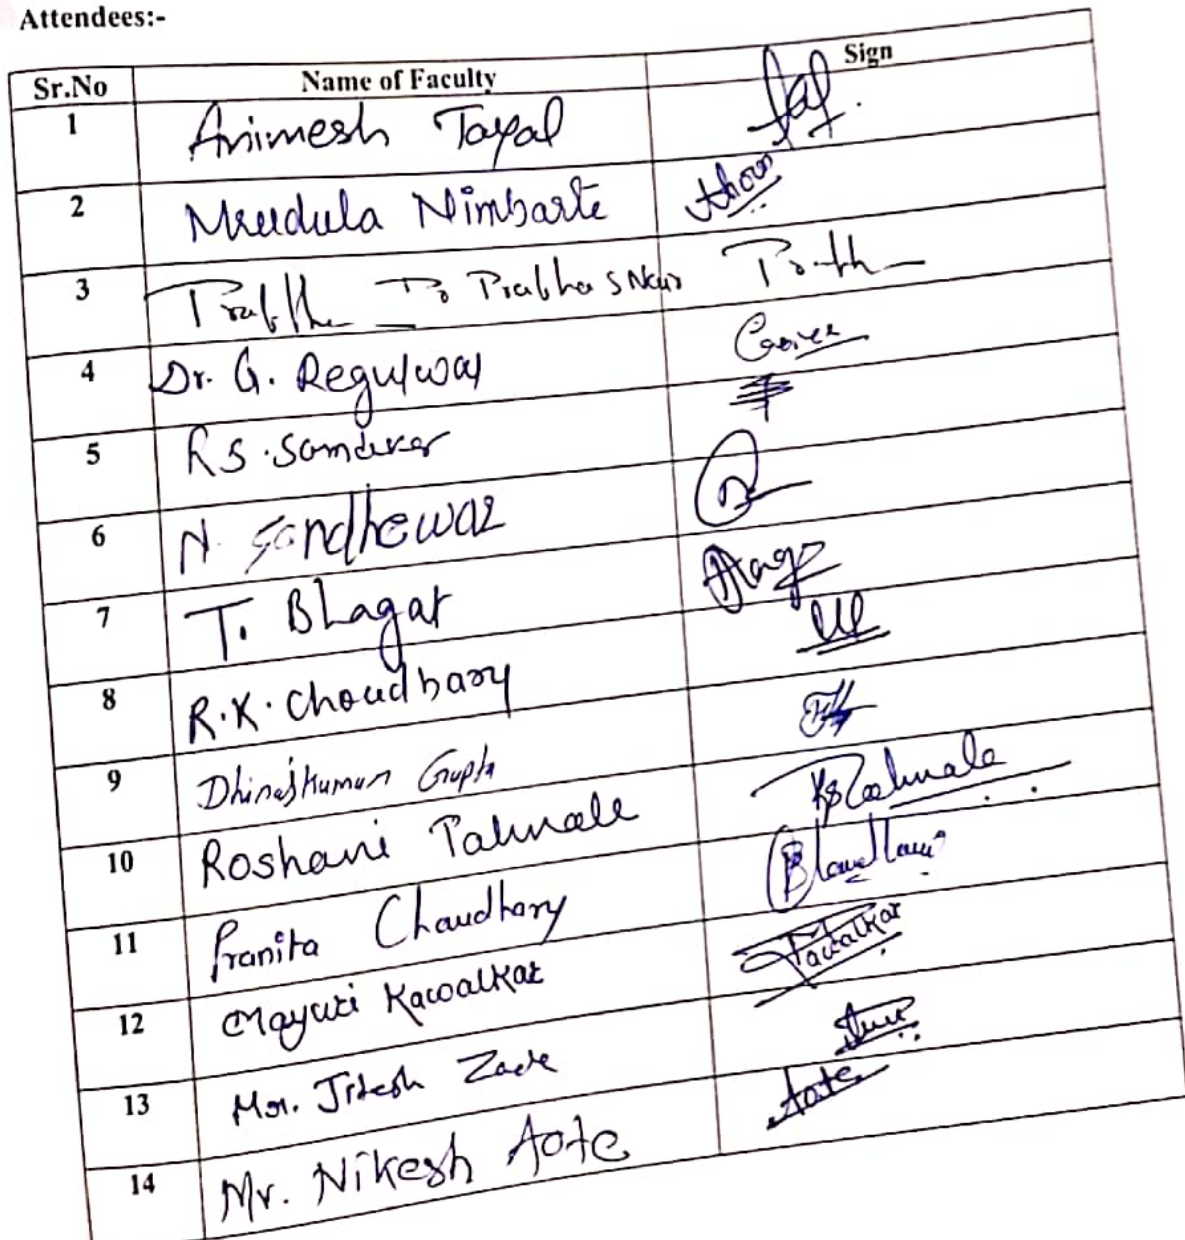 Attendees:-
Sr.No Name of Faculty Sign
1 Animesh Tayal
2 Mrudula Nimbarte
3 Dr Prabhas Nair
4 Dr. G. Regulwar
5 R S. Somdeker
6 N. Gandhewar
7 T. Bhagat
8 R.K. Choudhary
9 Dhirajkumar Gupta
10 Roshani Talmale RTalmale
11 Pranita Chaudhary
12 Mayuri Kawalkar Kawalkar
13 Mr. Jitesh Zade
14 Mr. Nikesh Aote Aote